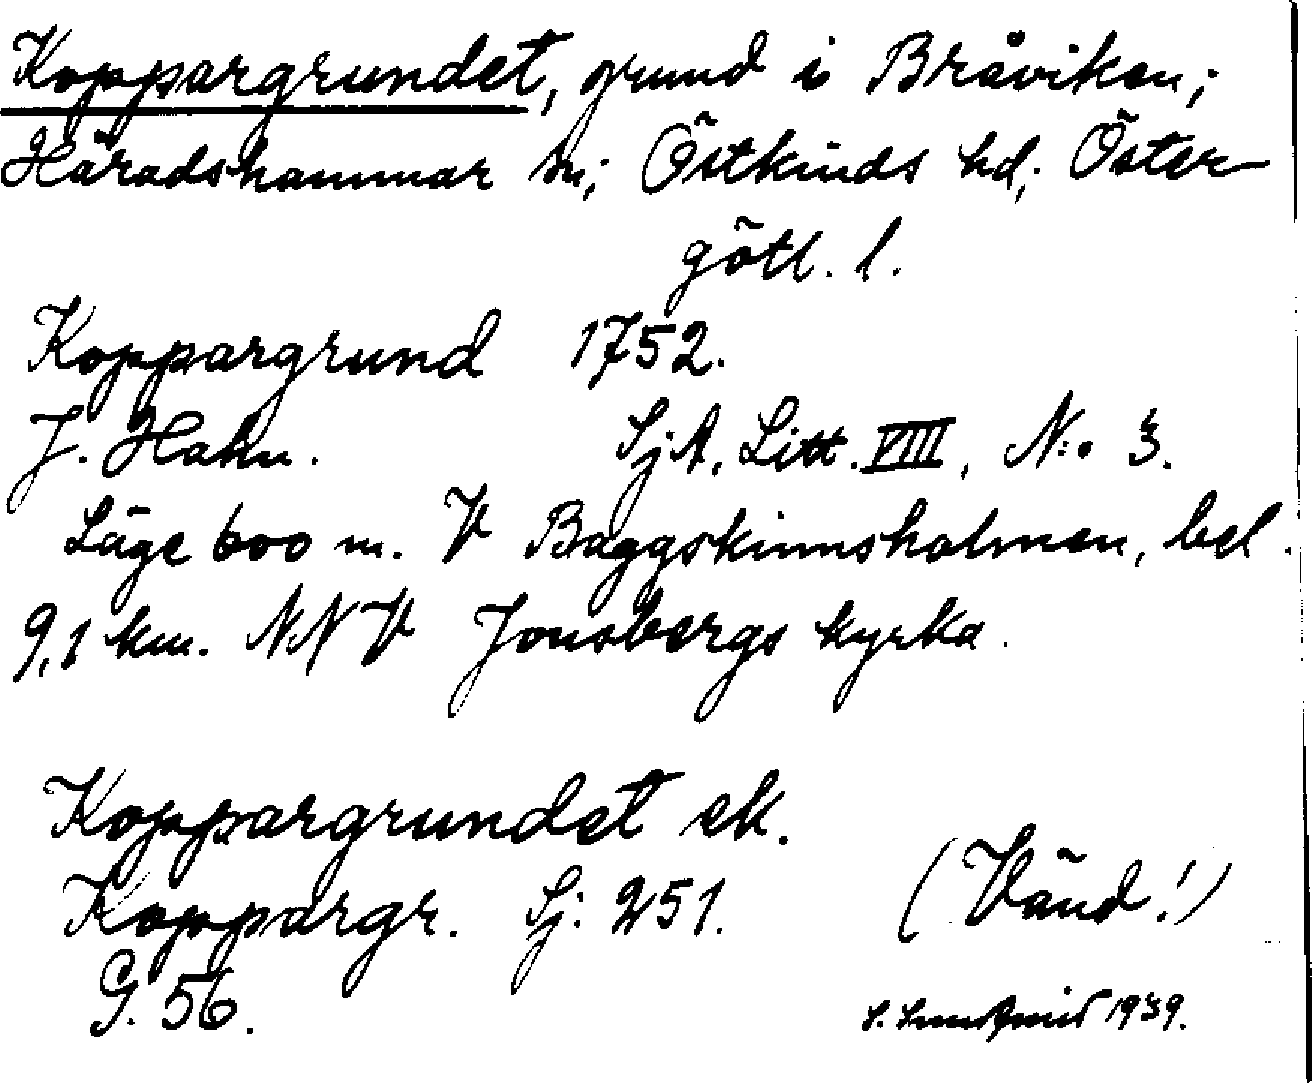 Koppargrundet, grund i Bråviken;
Häradshammar sn; Östkinds hd; Öster-
götl. l.
Koppargrund 1752.
J. Hahn. SjA. Litt. VIII, N:o 3.
Läge 600 m. V Baggskinnsholmen, bel.
9,1 km. NNV Jonsbergs kyrka.
Koppargrundet ek.
Koppargr. Sj. 251. (Vänd!)
G. 56.
1939.